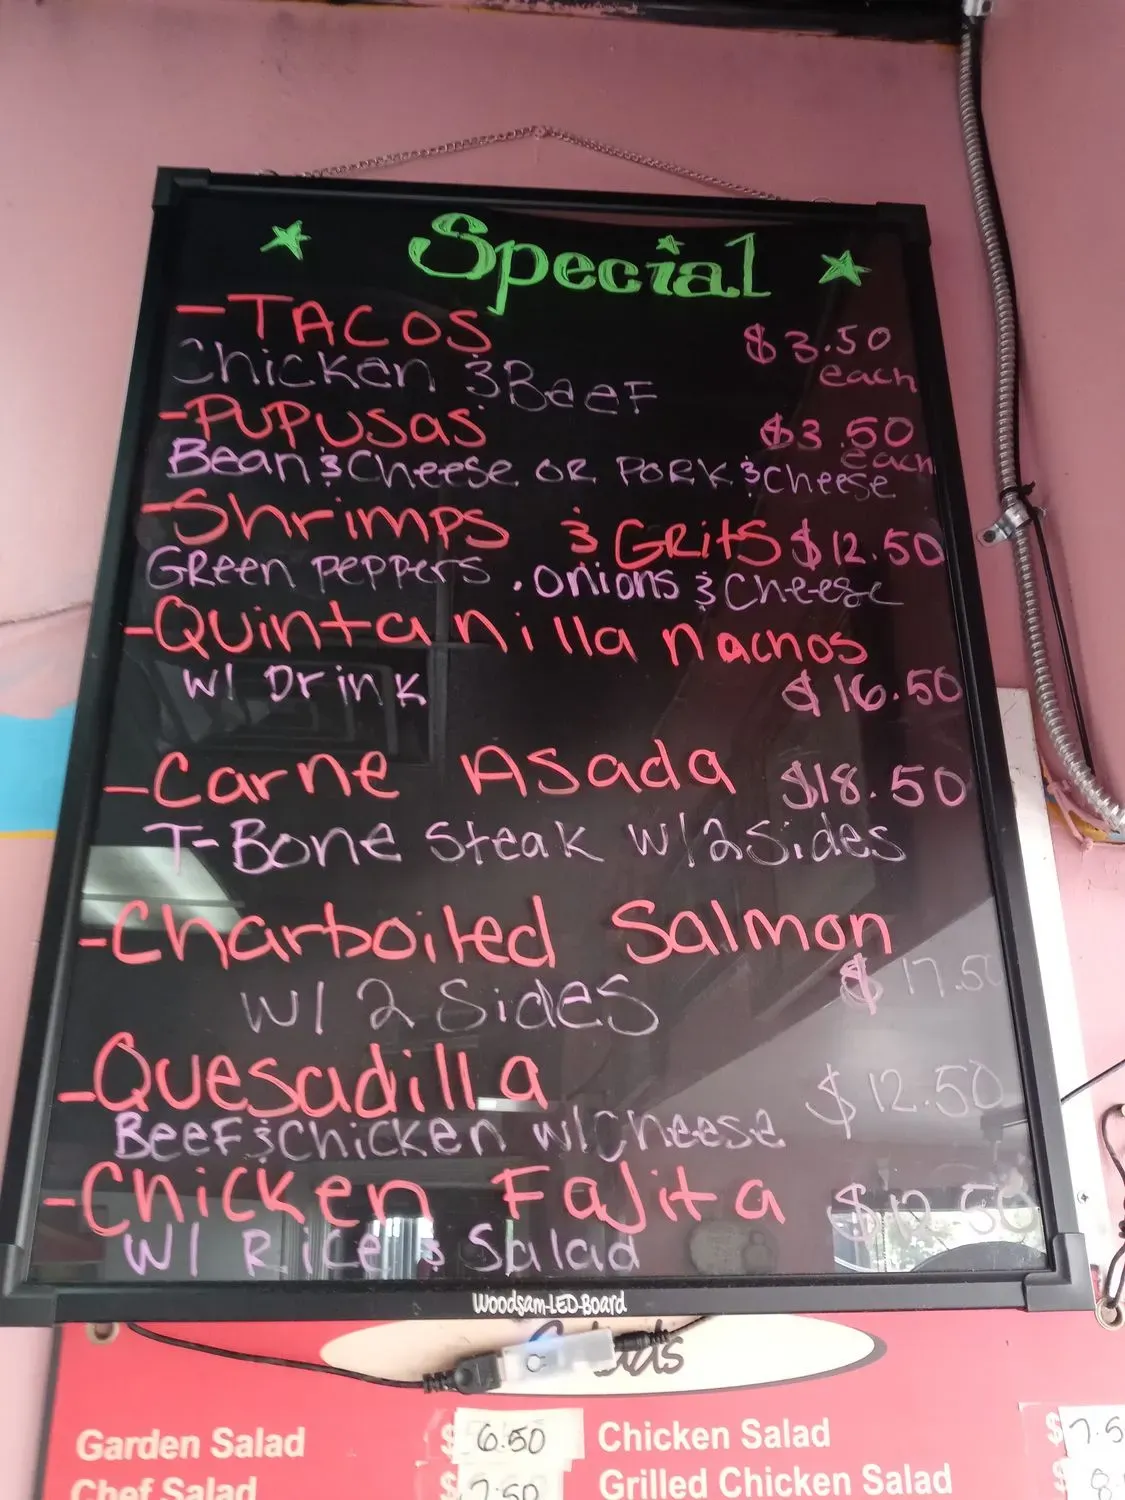 Special
-TACOS $3.50
Chicken & Beef each
-PUPUSAS $3.50
Bean & Cheese OR PORK & Cheese each
-Shrimps & GRitS $12.50
GReen peppers, onions & Cheese
-Quintanilla Nachos
W/ Drink $16.50
-Carne Asada $18.50
T-Bone Steak W/2 Sides
-Charboiled Salmon
W/ 2 Sides $17.50
-Quesadilla $12.50
BeeF & Chicken w/Cheese
-Chicken FaJita $12.50
W/ Rice & Salad
Woodsam-LED-Board
Garden Salad $6.50 Chicken Salad $7.5
Chef Salad $7.50 Grilled Chicken Salad $8.